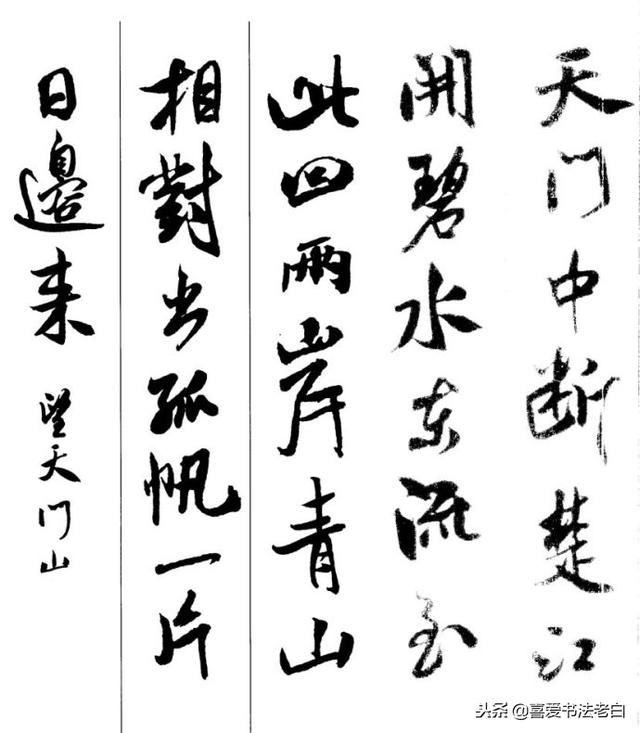 天门中断楚江
開碧水东流至
此回兩山岸青山
相對出孤帆一片
日邊来 望天门山
头条@喜爱书法老白